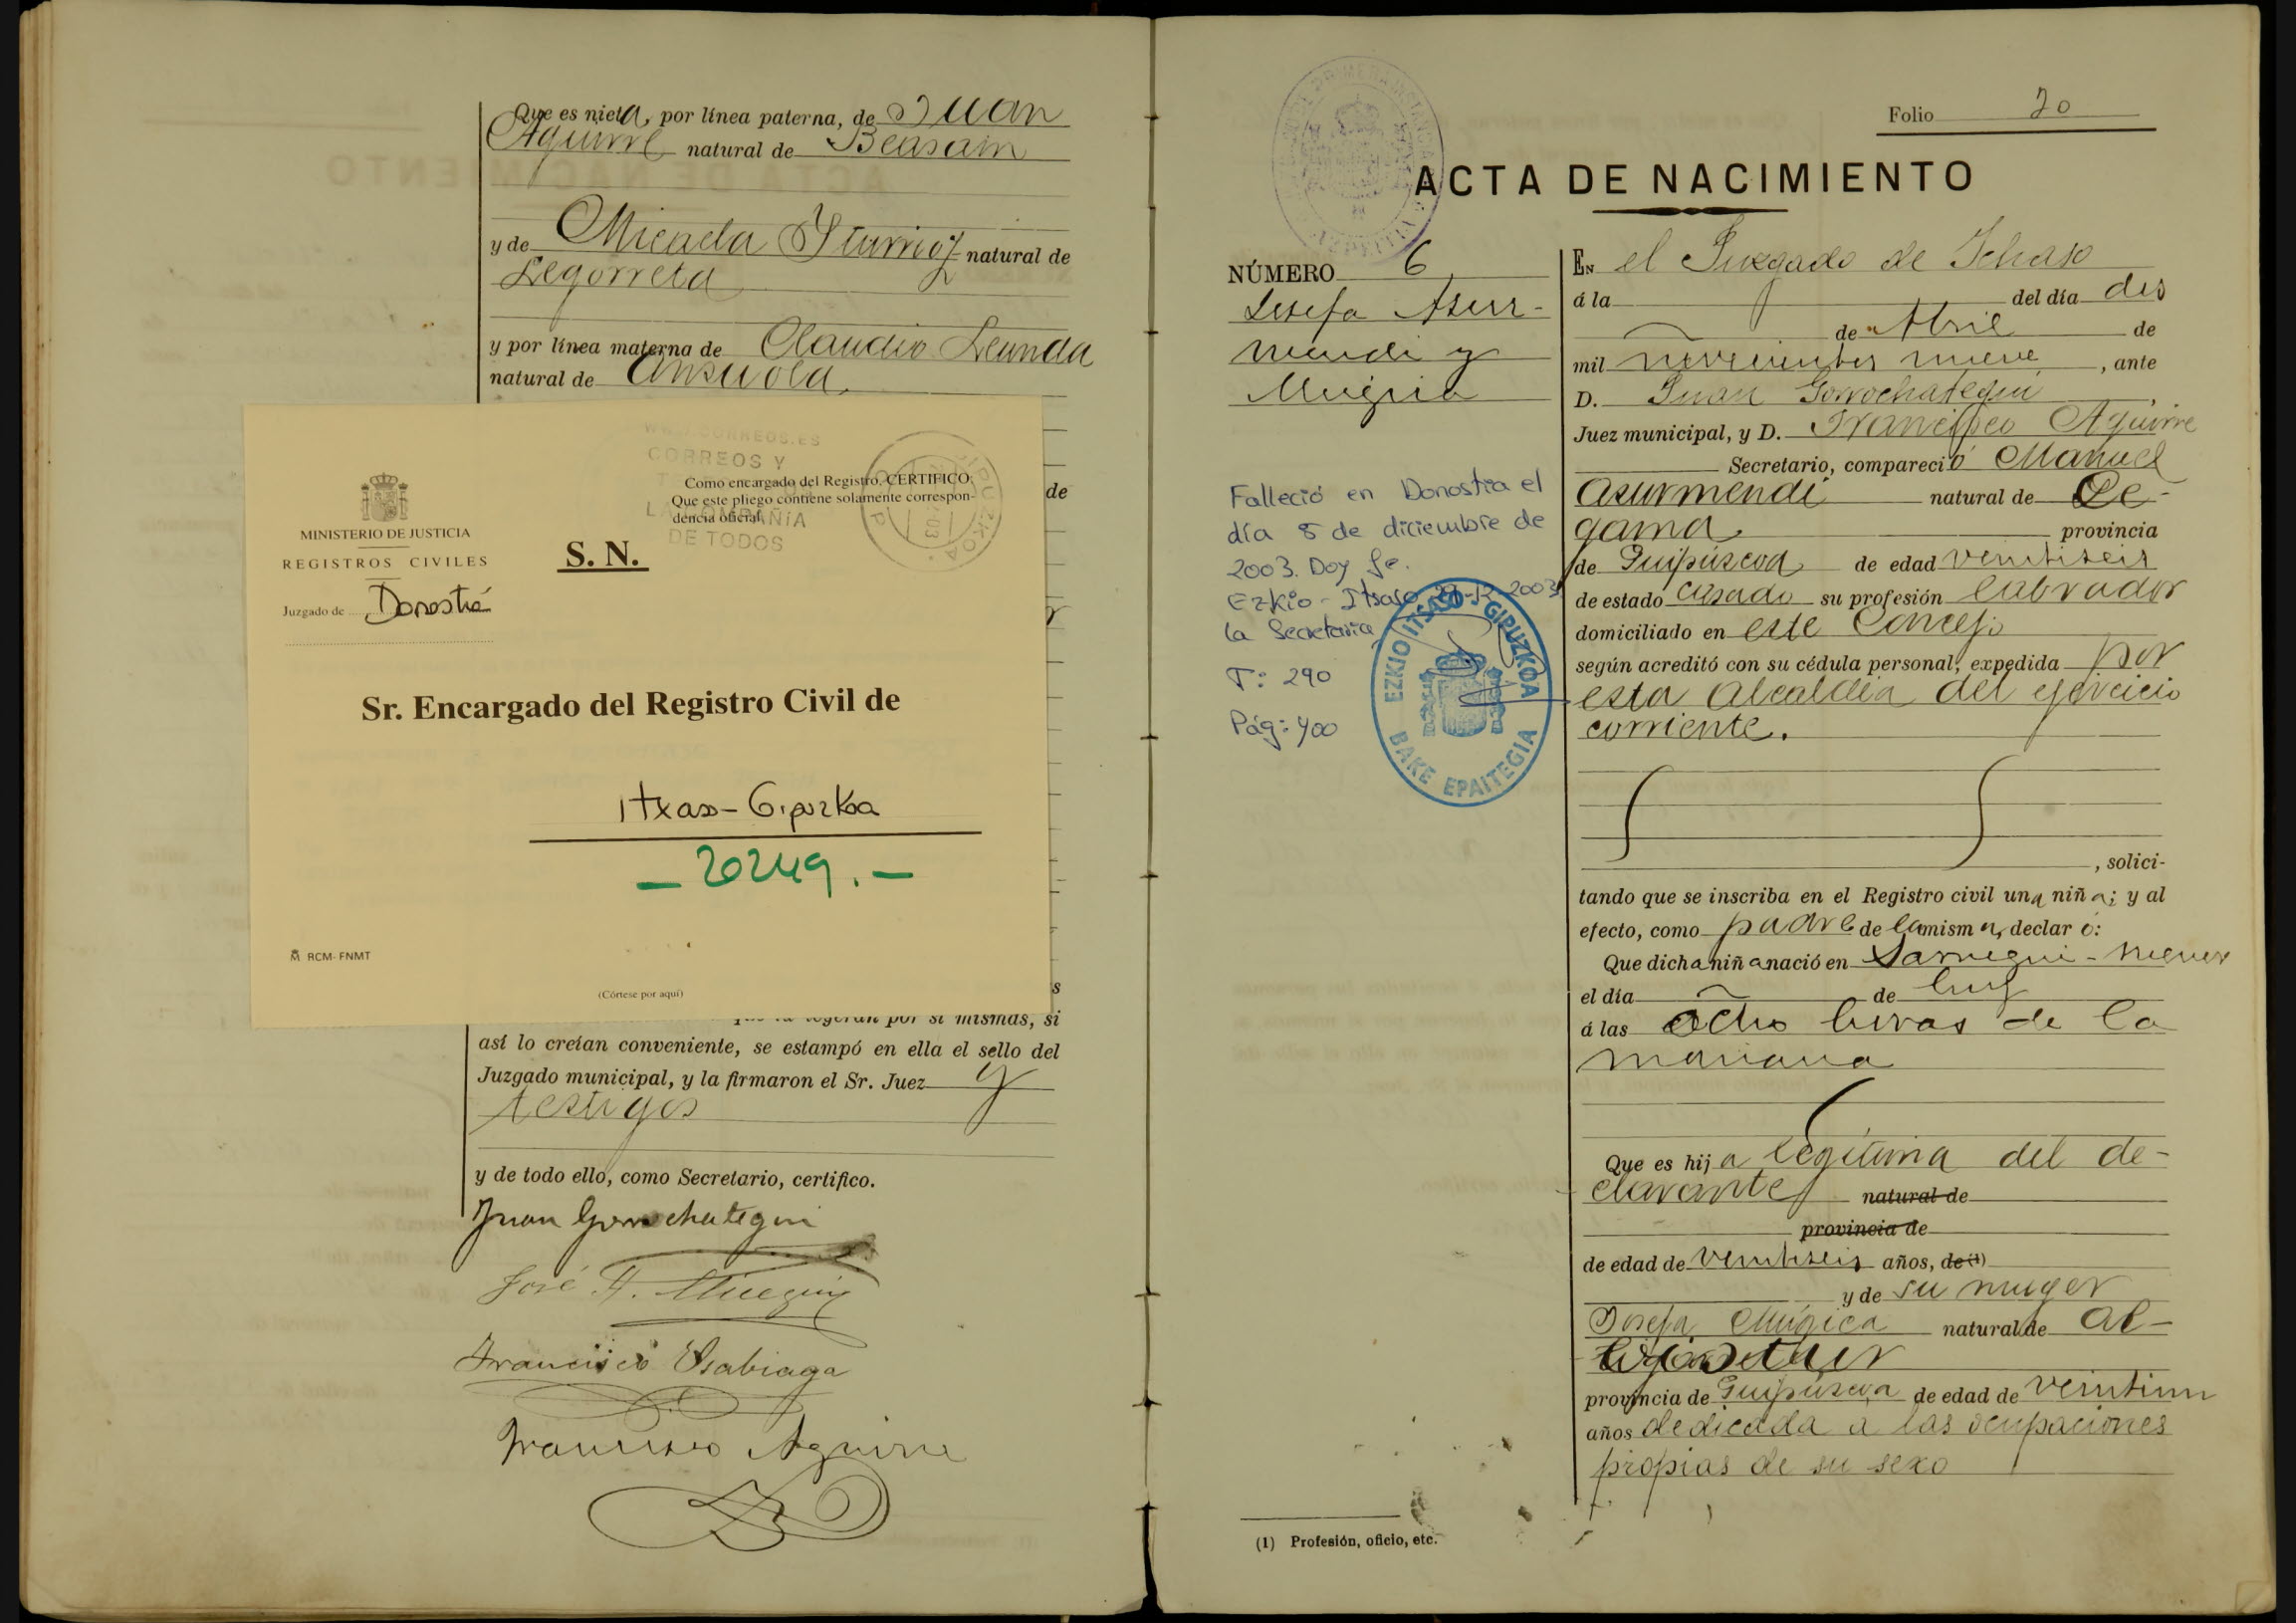 Que es nieta, por línea paterna, de Juan
Aguirre natural de Beasain
y de Micaela Yturrioz natural de
Legorreta
y por línea materna de Claudio Leunda
natural de Anzuola
de
WWW.CORREOS.ES
CORREOS Y
LA COMPAÑIA
DE TODOS
GIPUZKOA
Como encargado del Registro, CERTIFICO:
Que este pliego contiene solamente correspon-
dencia oficial.
MINISTERIO DE JUSTICIA
REGISTROS CIVILES
Juzgado de Donostia
S. N.
Sr. Encargado del Registro Civil de
Itxaso-Gipuzkoa
- 20249. -
RCM-FNMT
(Córtese por aquí)
por sí mismas, si
así lo creían conveniente, se estampó en ella el sello del
Juzgado municipal, y la firmaron el Sr. Juez y
testigos
y de todo ello, como Secretario, certifico.
Juan Gorrochategui
José
Francisco Ysabiaga
Francisco Aguirre
Folio 20
ACTA DE NACIMIENTO
NÚMERO 6
Josefa Asur-
mendi y
Mugica
Falleció en Donostia el
día 8 de diciembre de
2003. Doy fe.
Ezkio-Itsaso 2003
la Secretaria
T: 290
Pág: 400
EZKIO ITSASO - GIPUZKOA
BAKE EPAITEGIA
En el Juzgado de Ichaso
á la del día dos
de Abril de
mil novecientos nueve, ante
D. Juan Gorrochategui,
Juez municipal, y D. Francisco Aguirre
Secretario, compareció Manuel
Asurmendi natural de Ce-
gama provincia
de Guipúzcoa de edad veintiseis
de estado casado su profesión labrador
domiciliado en este Concejo
según acreditó con su cédula personal, expedida por
esta Alcaldia del ejercicio
corriente.
, solici-
tando que se inscriba en el Registro civil una niña; y al
efecto, como padre de la misma, declaró:
Que dicha niña nació en Sarriegui-
el día de hoy
á las ocho horas de la
mañana
Que es hija legítima del de-
clarante natural de
provincia de
de edad de veintiseis años, de (1)
y de su muger
Josefa Múgica natural de
provincia de Guipúzcoa de edad de veintiun
años dedicada a las ocupaciones
propias de su sexo
(1) Profesión, oficio, etc.